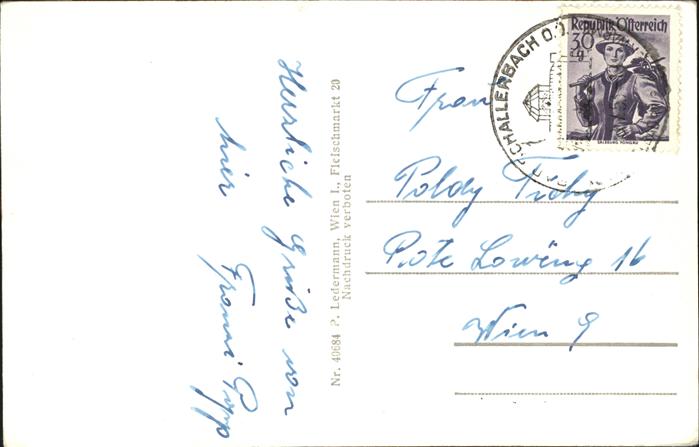 Herzliche Grüße von
hier
Nr. 40684 P. Ledermann, Wien I., Fleischmarkt 20
Nachdruck verboten
BAD SCHALLERBACH O.Ö.
Republik Österreich
30
g
SALZBURG PONGAU
Frau
Poldy Tichy
Rote Löweng 16
Wien 9